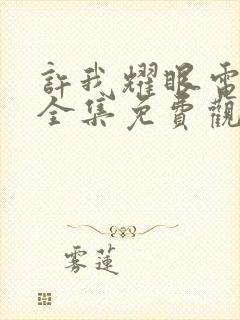 許我耀眼電
全集免費觀
雾蓮